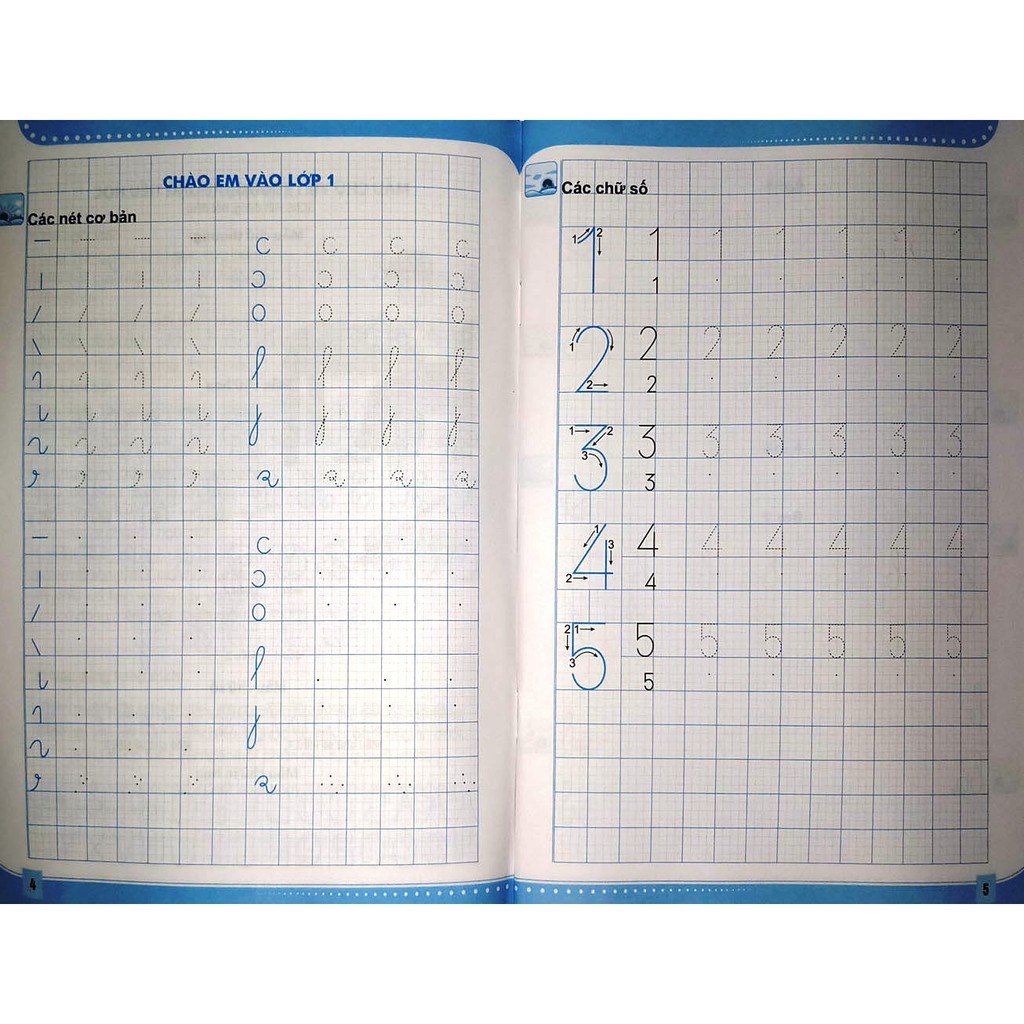 CHÀO EM VÀO LỚP 1
Các nét cơ bản
c c c c
o o o o
c
o
4
Các chữ số
1 2
1 1 1 1 1 1 1
1
1
2 2 2 2 2 2 2
2 2
1 2
3 3 3 3 3 3 3
3
3
1
3
4 4 4 4 4 4 4
2 4
2 1
5 5 5 5 5 5 5
3
5
5